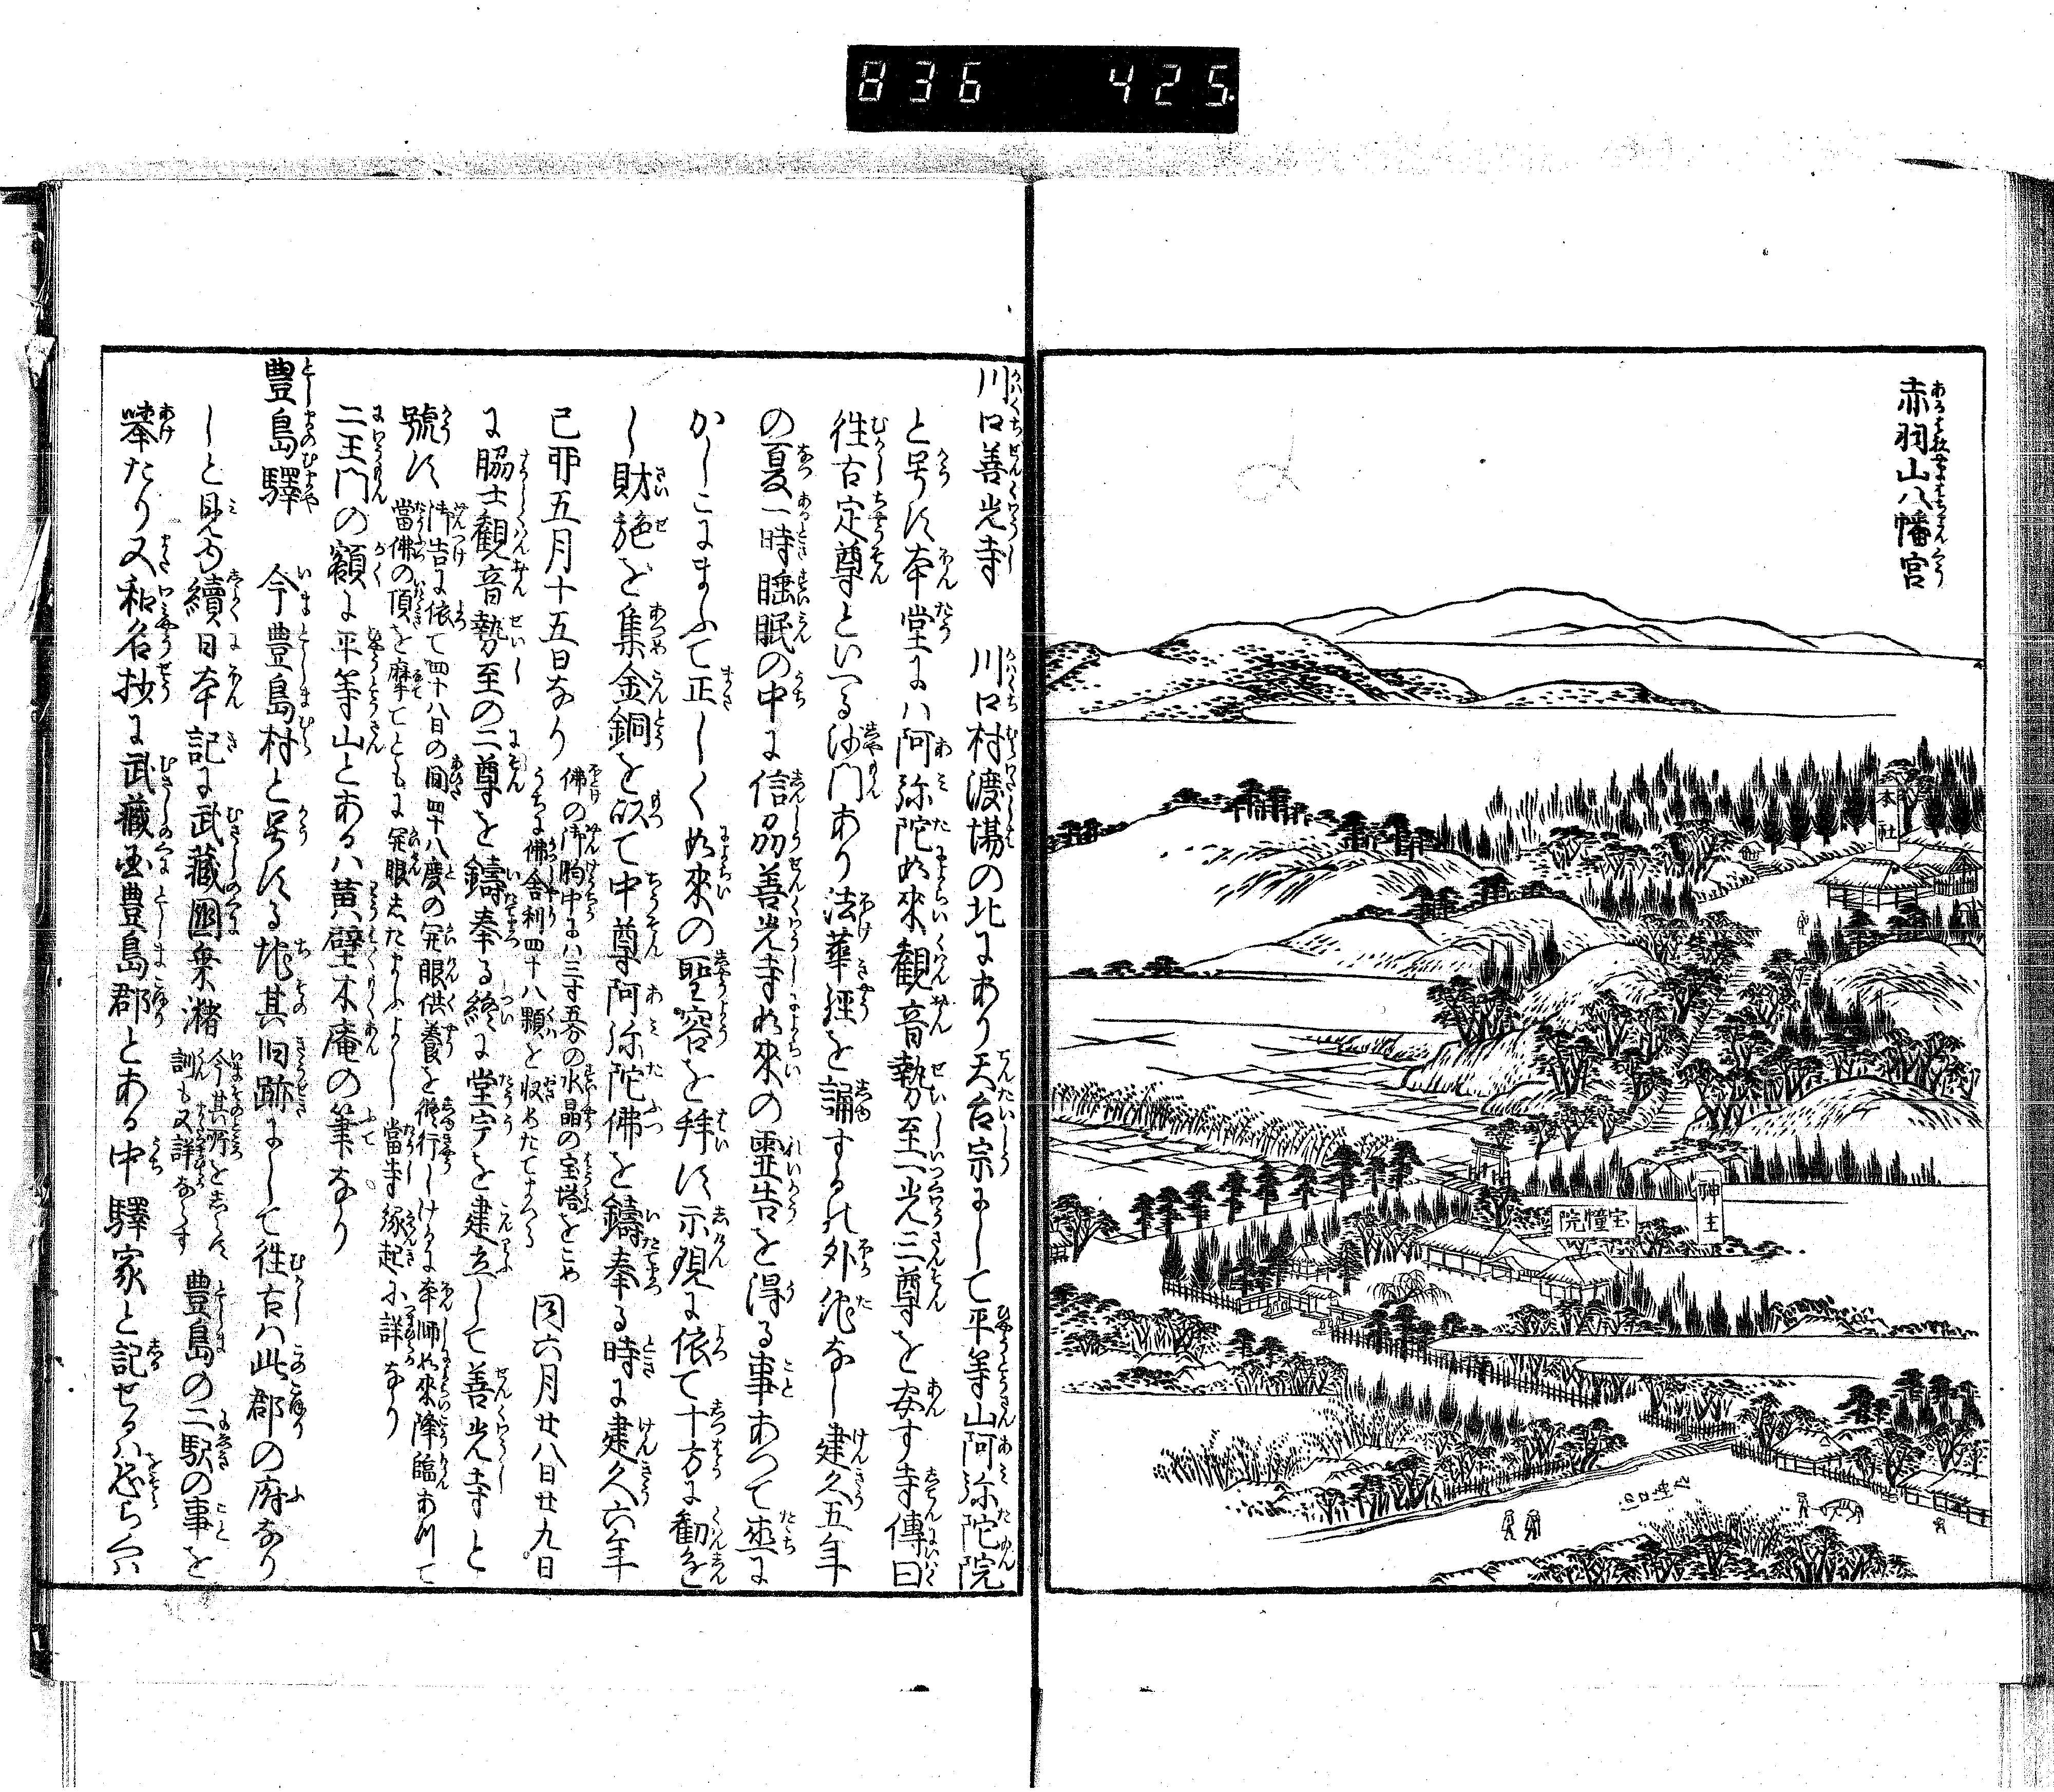 836 425
赤羽山八幡宮
本社
神主
宝幢院
川口善光寺 川口村渡場の北にあり天台宗にして平等山阿弥陀院
と号す本堂には阿弥陀如來観音勢至一光三尊を安す寺傳曰
往古定尊といへる沙門あり法華經を誦するの外他なし建久五年
の夏一時睡眠の中に信州善光寺如來の霊告を得る事あつて遂に
かしこにまふて正しく如來の聖容を拜す示現に依て十方に勧進
し財施を集金銅を以て中尊阿弥陀佛を鑄奉る時に建久六年
己卯五月十五日なり 佛の御胸中には三寸五分の水晶の宝塔をこめ
うちに佛舎利四十八顆を収めたてまつる 同六月廿八日廿九日
に脇士観音勢至の二尊を鑄奉る終に堂宇を建立して善光寺と
號す 御告に依て四十八日の間四十八度の開眼供養を修行しけるに本師如來降臨ありて
當佛の頂を摩てともに開眼したまふよし當寺縁起に詳なり
二王門の額に平等山とあるは黄檗木庵の筆なり
豊島驛 今豊島村と号する地其旧跡にして往古は此郡の府なり
しと見ゆ續日本記に武藏國乗潴 今其所をしらす
訓も又詳ならす 豊島の二駅の事を
挙たり又和名抄に武藏国豊島郡とある中驛家と記せるは恐らくは